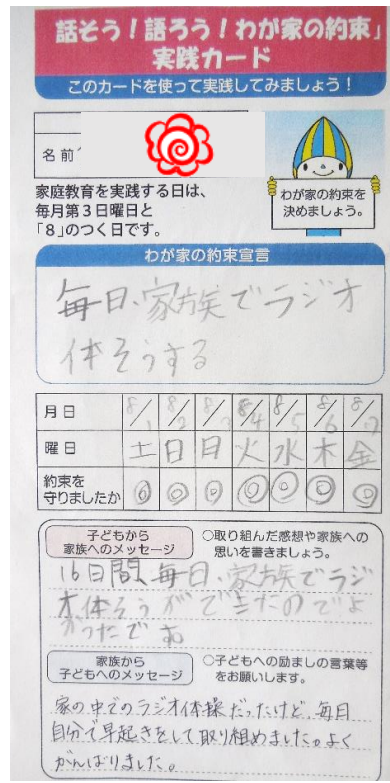 話そう!語ろう!わが家の約束」
実践カード
このカードを使って実践してみましょう!
名前
家庭教育を実践する日は、
毎月第3日曜日と
「8」のつく日です。
わが家の約束を
決めましょう。
わが家の約束宣言
毎日、家族でラジオ
体そうする
月日 8/1 8/2 8/3 8/4 8/5 8/6 8/7
曜日 土 日 月 火 水 木 金
約束を
守りましたか ◎ ◎ ◎ ◎ ◎ ◎ ◎
子どもから
家族へのメッセージ
○取り組んだ感想や家族への
思いを書きましょう。
16日間、毎日、家族でラジ
オ体そうができたのでよ
かったです
家族から
子どもへのメッセージ
○子どもへの励ましの言葉等
をお願いします。
家の中でのラジオ体操だったけど、毎日
自分で早起きをして取り組めました。よく
がんばりました。